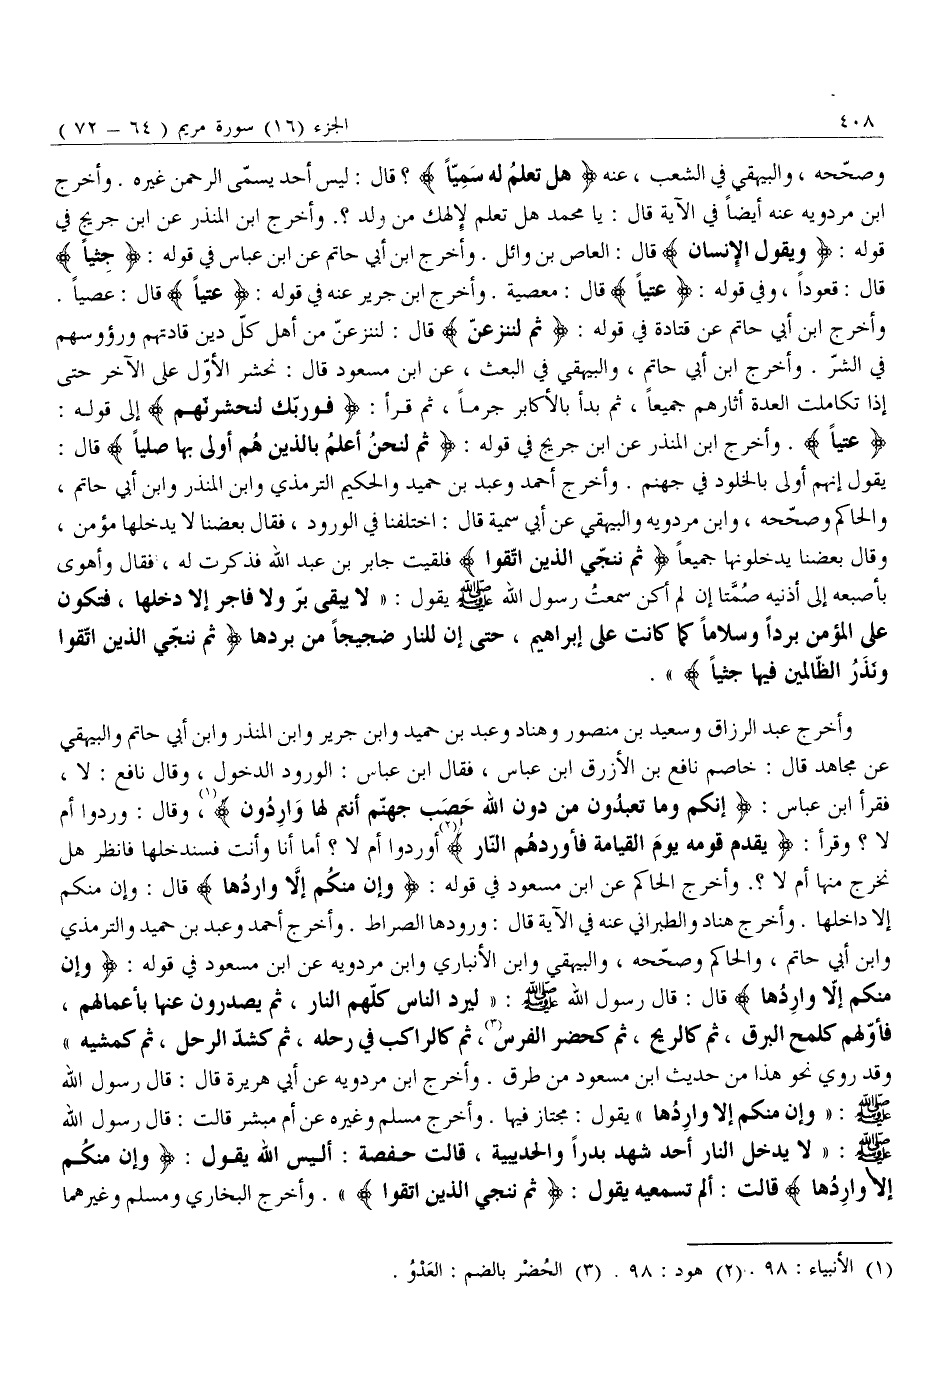 ٤٠٨
الجزء (١٦) سورة مريم ( ٦٤ – ٧٢ )
وصحّحه ، والبيهقي في الشعب ، عنه ﴿ هل تعلمُ له سَمِيّاً ﴾ ؟ قال : ليس أحد يسمّى الرحمن غيره . وأخرج
ابن مردويه عنه أيضاً في الآية قال : يا محمد هل تعلم لإلهك من ولد ؟. وأخرج ابن المنذر عن ابن جريج في
قوله : ﴿ ويقول الإنسان ﴾ قال : العاص بن وائل . وأخرج ابن أبي حاتم عن ابن عباس في قوله : ﴿ جِثياً ﴾
قال : قعوداً ، وفي قوله : ﴿ عتياً ﴾ قال : معصية . وأخرج ابن جرير عنه في قوله : ﴿ عتياً ﴾ قال : عصياً .
وأخرج ابن أبي حاتم عن قتادة في قوله : ﴿ ثم لننزعنّ ﴾ قال : لننزعنّ من أهل كلّ دين قادتهم ورؤوسهم
في الشرّ . وأخرج ابن أبي حاتم ، والبيهقي في البعث ، عن ابن مسعود قال : نحشر الأوّل على الآخر حتى
إذا تكاملت العدة أثارهم جميعاً ، ثم بدأ بالأكابر جرماً ، ثم قرأ : ﴿ فوربّك لنحشرنّهم ﴾ إلى قوله :
﴿ عتياً ﴾ . وأخرج ابن المنذر عن ابن جريج في قوله : ﴿ ثم لنحنُ أعلمُ بالذين هُم أولى بها صلياً ﴾ قال :
يقول إنهم أولى بالخلود في جهنم . وأخرج أحمد وعبد بن حميد والحكيم الترمذي وابن المنذر وابن أبي حاتم ،
والحاكم وصحّحه ، وابن مردويه والبيهقي عن أبي سمية قال : اختلفنا في الورود ، فقال بعضنا لا يدخلها مؤمن ،
وقال بعضنا يدخلونها جميعاً ﴿ ثم ننجّي الذين اتّقوا ﴾ فلقيت جابر بن عبد الله فذكرت له ، فقال وأهوى
بأصبعه إلى أذنيه صُمَّتا إن لم أكن سمعتُ رسول الله ﷺ يقول : « لا يبقى برّ ولا فاجر إلا دخلها ، فتكون
على المؤمن برداً وسلاماً كما كانت على إبراهيم ، حتى إن للنار ضجيجاً من بردها ﴿ ثم ننجّي الذين اتّقوا
ونَذَرُ الظّالمين فيها جثياً ﴾ » .
وأخرج عبد الرزاق وسعيد بن منصور وهناد وعبد بن حميد وابن جرير وابن المنذر وابن أبي حاتم والبيهقي
عن مجاهد قال : خاصم نافع بن الأزرق ابن عباس ، فقال ابن عباس : الورود الدخول ، وقال نافع : لا ،
فقرأ ابن عباس : ﴿ إنكم وما تعبدُون من دون الله حَصَب جهنّم أنتم لها وَارِدُون ﴾(١)، وقال : وردوا أم
لا ؟ وقرأ : ﴿ يقدم قومه يومَ القيامة فأوردهُم النّار ﴾(٢) أوردوا أم لا ؟ أما أنا وأنت فسندخلها فانظر هل
نخرج منها أم لا ؟. وأخرج الحاكم عن ابن مسعود في قوله : ﴿ وإن منكُم إلَّا واردُها ﴾ قال : وإن منكم
إلا داخلها . وأخرج هناد والطبراني عنه في الآية قال : ورودها الصراط . وأخرج أحمد وعبد بن حميد والترمذي
وابن أبي حاتم ، والحاكم وصحّحه ، والبيهقي وابن الأنباري وابن مردويه عن ابن مسعود في قوله : ﴿ وإن
منكم إلّا وارِدُها ﴾ قال : قال رسول الله ﷺ : « ليرد الناس كلّهم النار ، ثم يصدرون عنها بأعمالهم ،
فأوّلهم كلمح البرق ، ثم كالريح ، ثم كحضر الفرس(٣)، ثم كالراكب في رحله ، ثم كشدّ الرحل ، ثم كمشيه »
وقد روي نحو هذا من حديث ابن مسعود من طرق . وأخرج ابن مردويه عن أبي هريرة قال : قال رسول الله
ﷺ : « وإن منكم إلا واردُها » يقول : مجتاز فيها . وأخرج مسلم وغيره عن أم مبشر قالت : قال رسول الله
ﷺ : « لا يدخل النار أحد شهد بدراً والحديبية ، قالت حفصة : أليس الله يقول : ﴿ وإن منكُم
إلا وارِدُها ﴾ قالت : ألم تسمعيه يقول : ﴿ ثم ننجي الذين اتقوا ﴾ » . وأخرج البخاري ومسلم وغيرهما
(١) الأنبياء : ٩٨ . (٢) هود : ٩٨ . (٣) الحُضْر بالضم : العَدْوُ .